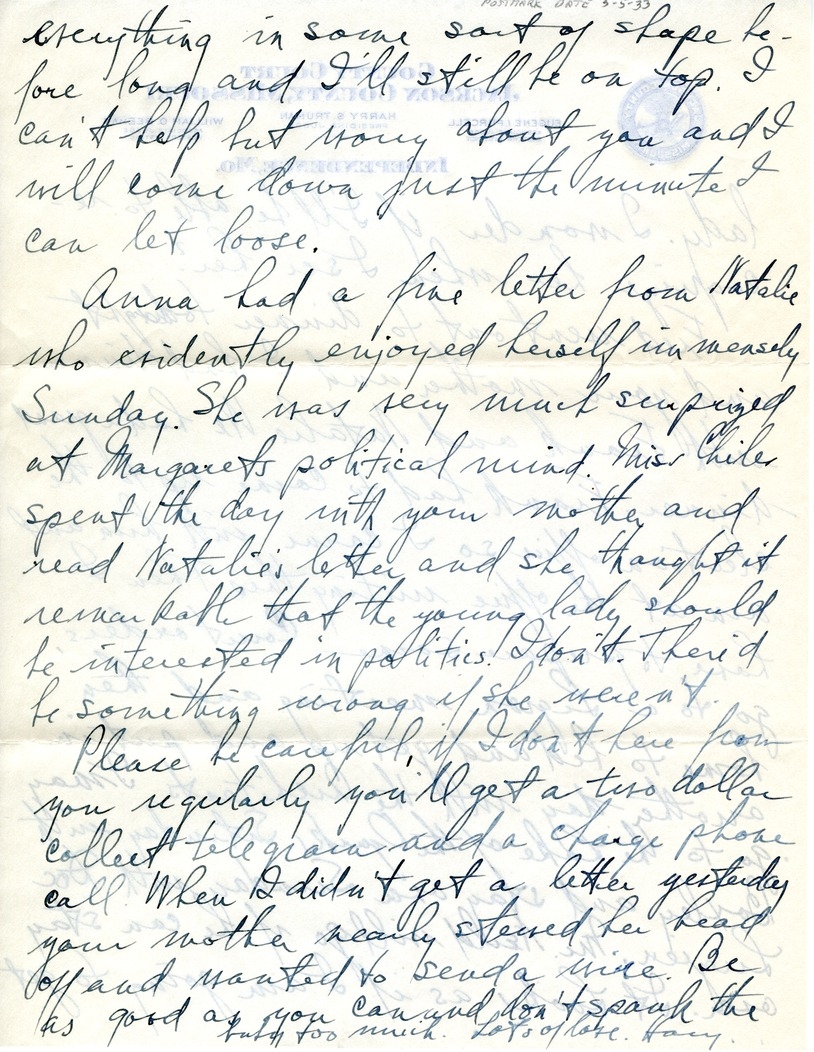 POSTMARK DATE 3-5-33
everything in some sort of shape be-
fore long and I'll still be on top. I
can't help but worry about you and I
will come down just the minute I
can let loose.
Anna had a fine letter from Natalie
who evidently enjoyed herself immensely
Sunday. She was very much surprized
at Margarets political mind. Miss Chiles
spent the day with your mother and
read Natalie's letter and she thought it
remarkable that the young lady should
be interested in politics. I don't. There'd
be something wrong if she weren't.
Please be careful, if I don't here from
you regularly you'll get a two dollar
collect telegram and a charge phone
call. When I didn't get a letter yesterday
your mother nearly stewed her head
off and wanted to send a wire. Be
as good as you can and don't spank the
baby too much. Lots of love. Harry.